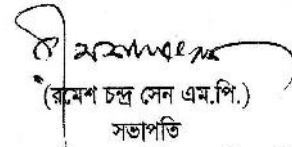 (রমেশ চন্দ্র সেন এম.পি.)
সভাপতি